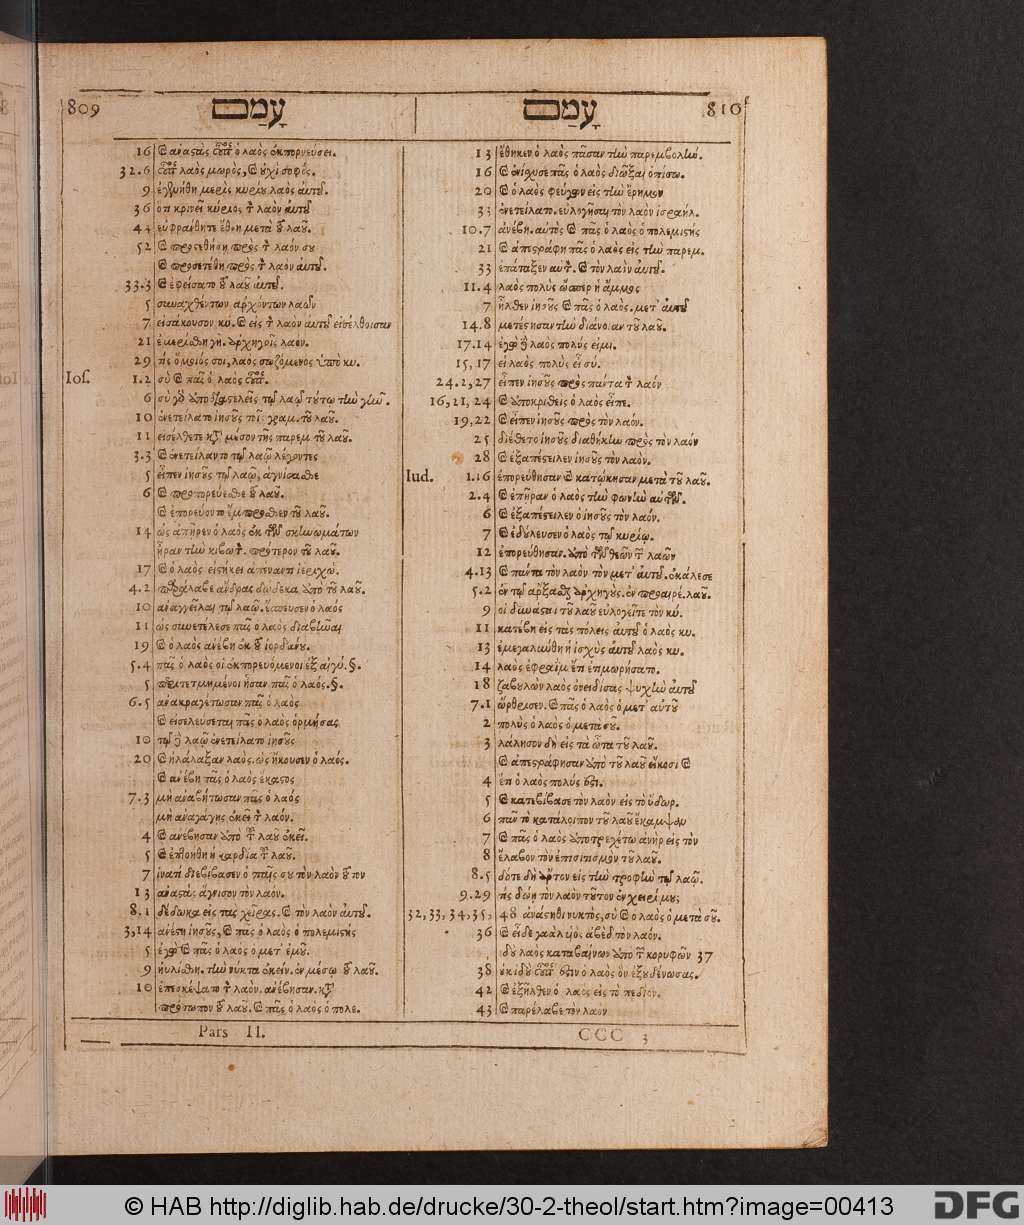 809 עָמַם עָמַם 810
16 καὶ ἀναστὰς οὗτος ὁ λαὸς ἐκπορνεύσει.
32.6 οὗτος λαὸς μωρὸς, καὶ οὐχὶ σοφός.
9 ἐγενήθη μερὶς κυρίου λαὸς αὐτοῦ.
36 ὅτι κρινεῖ κύριος τὸν λαὸν αὐτοῦ
43 εὐφράνθητε ἔθνη μετὰ τοῦ λαοῦ.
52 καὶ προσετέθη πρὸς τὸν λαόν σου
καὶ προσετέθη πρὸς τὸν λαὸν αὐτοῦ.
33.3 καὶ ἐφείσατο τοῦ λαοῦ αὐτοῦ.
5 συναχθέντων ἀρχόντων λαῶν
7 εἰσάκουσον κύ. καὶ εἰς τὸν λαὸν αὐτοῦ εἰσέλθοισαν
21 ἐμερίσθη γῆ. ἀρχηγοῖς λαῶν.
29 τίς ὅμοιός σοι, λαὸς σωζόμενος ὑπὸ κυ.
Ios. 1.2 σὺ καὶ πᾶς ὁ λαὸς οὗτος.
6 σὺ γὰρ ἀποδιαστελεῖς τῷ λαῷ τούτῳ τὴν γῆν.
10 ἐνετείλατο ἰησοῦς τοῖς γραμ. τοῦ λαοῦ.
11 εἰσέλθετε κατὰ μέσον τῆς παρεμ τοῦ λαοῦ.
3.3 καὶ ἐνετείλαντο τῷ λαῷ λέγοντες
5 εἶπεν ἰησοῦς τῷ λαῷ, ἁγνίσασθε
6 καὶ προπορεύεσθε τοῦ λαοῦ.
καὶ ἐπορεύοντο ἔμπροσθεν τοῦ λαοῦ.
14 ὡς ἀπῆρεν ὁ λαὸς ἐκ τῶν σκηνωμάτων
ἦραν τὴν κιβωτὸν. πρότερον τοῦ λαοῦ.
17 καὶ ὁ λαὸς εἱστήκει ἀπέναντι ἱεριχώ.
4.2 παράλαβε ἄνδρας δώδεκα ἀπὸ τοῦ λαοῦ.
10 ἀναγγεῖλαι τῷ λαῷ. ἔσπευσεν ὁ λαός
11 ὡς συνετέλεσε πᾶς ὁ λαὸς διαβῆναι
19 καὶ ὁ λαὸς ἀνέβη ἐκ τοῦ ἰορδάνου.
5.4 πᾶς ὁ λαὸς οἱ ἐκπορευόμενοι ἐξ αἰγύ. §.
5 περιτετμημένοι ἦσαν πᾶς ὁ λαός. §.
6.5 ἀνακραγέτωσαν πᾶς ὁ λαὸς
καὶ εἰσελεύσεται πᾶς ὁ λαὸς ὁρμήσας
10 τῷ δὲ λαῷ ἐνετείλατο ἰησοῦς
20 καὶ ἠλάλαξαν λαὸς. ὡς ἤκουσεν ὁ λαός.
καὶ ἀνέβη πᾶς ὁ λαὸς ἕκαστος
7.3 μὴ ἀναβήτωσαν πᾶς ὁ λαός
μὴ ἀναγάγῃς ἐκεῖ τὸν λαόν.
4 καὶ ἀνέβησαν ἀπὸ τοῦ λαοῦ ἐκεῖ.
5 καὶ ἐπτοήθη ἡ καρδία τοῦ λαοῦ.
7 ἱνατί διεβίβασεν ὁ παῖς σου τὸν λαὸν τοῦτον
13 ἀναστὰς ἁγίασον τὸν λαόν.
8.1 δέδωκα εἰς τὰς χεῖρας. καὶ τὸν λαὸν αὐτοῦ.
3,14 ἀνέστη ἰησοῦς, καὶ πᾶς ὁ λαὸς ὁ πολεμιστὴς
5 ἐγὼ καὶ πᾶς ὁ λαὸς ὁ μετ' ἐμοῦ.
9 ηὐλίσθη. τὴν νύκτα ἐκείν. ἐν μέσῳ τοῦ λαοῦ.
10 ἐπεσκέψατο τὸν λαόν. ἀνέβησαν. κατὰ
πρόσωπον τοῦ λαοῦ. καὶ πᾶς ὁ λαὸς ὁ πολε.
Pars II.
13 ἔθηκεν ὁ λαὸς πᾶσαν τὴν παρεμβολήν.
16 καὶ ἐνίσχυσε πᾶς ὁ λαὸς διῶξαι ὀπίσω.
20 καὶ ὁ λαὸς φεύγων εἰς τὴν ἔρημον
33 ἐνετείλατο. εὐλογῆσαι τὸν λαὸν ἰσραήλ.
10.7 ἀνέβη. αὐτὸς καὶ πᾶς ὁ λαὸς ὁ πολεμιστής
21 καὶ ἀπεστράφη πᾶς ὁ λαὸς εἰς τὴν παρεμ.
33 ἐπάταξεν αὐτὸν. καὶ τὸν λαὸν αὐτοῦ.
11.4 λαὸς πολὺς ὥσπερ ἡ ἄμμος
7 ἦλθεν ἰησοῦς καὶ πᾶς ὁ λαὸς. μετ' αὐτοῦ
14.8 μετέστησαν τὴν διάνοιαν τοῦ λαοῦ.
17.14 ἐγὼ δὲ λαὸς πολύς εἰμι.
15, 17 εἰ λαὸς πολὺς εἶ σύ.
24.2, 27 εἶπεν ἰησοῦς πρὸς πάντα τὸν λαόν
16, 21, 24 καὶ ἀποκριθεὶς ὁ λαὸς εἶπε.
19, 22 καὶ εἶπεν ἰησοῦς πρὸς τὸν λαόν.
25 διέθετο ἰησοῦς διαθήκην πρὸς τὸν λαὸν
28 καὶ ἐξαπέστειλεν ἰησοῦς τὸν λαὸν.
Iud. 1.16 ἐπορεύθησαν καὶ κατῴκησαν μετὰ τοῦ λαοῦ.
2.4 καὶ ἐπῆραν ὁ λαὸς τὴν φωνὴν αὐτῶν.
6 καὶ ἐξαπέστειλεν ὁ ἰησοῦς τὸν λαόν.
7 καὶ ἐδούλευσεν ὁ λαὸς τῷ κυρίῳ.
12 ἐπορεύθησαν. ἀπὸ τῶν θεῶν τῶν λαῶν
4.13 καὶ πάντα τὸν λαὸν τὸν μετ' αὐτοῦ. ἐκάλεσε
5.2 ἐν τῷ ἄρξασθαι ἀρχηγούς. ἐν προαιρέ. λαοῦ.
9 οἱ δυνάσται τοῦ λαοῦ εὐλογεῖτε τὸν κύ.
11 κατέβη εἰς τὰς πόλεις αὐτοῦ ὁ λαὸς κυ.
13 ἐμεγαλύνθη ἡ ἰσχὺς αὐτοῦ λαὸς κυ.
14 λαὸς ἐφραῒμ ἐτιμωρήσατο.
18 ζαβουλὼν λαὸς ὀνειδίσας ψυχὴν αὐτοῦ
7.1 ὤρθρισεν. καὶ πᾶς ὁ λαὸς ὁ μετ' αὐτοῦ
2 πολὺς ὁ λαὸς ὁ μετὰ σοῦ.
3 λάλησον δὴ εἰς τὰ ὦτα τοῦ λαοῦ.
καὶ ἀπεστράφησαν ἀπὸ τοῦ λαοῦ εἴκοσι καὶ
4 ἔτι ὁ λαὸς πολύς ἐστι.
5 καὶ κατεβίβασε τὸν λαὸν εἰς τὸ ὕδωρ.
6 πᾶν τὸ κατάλοιπον τοῦ λαοῦ ἔκαμψαν
7 καὶ πᾶς ὁ λαὸς ἀποτρεχέτω ἀνὴρ εἰς τὸν
8 ἔλαβον τὸν ἐπισιτισμὸν τοῦ λαοῦ.
8.5 δότε δὴ ἄρτον εἰς τὴν τροφὴν τῷ λαῷ.
9.29 τίς δῴη τὸν λαὸν τοῦτον ἐν χειρί μου
32, 33, 34, 35, 48 ἀνάστηθι νυκτὸς, σὺ καὶ ὁ λαὸς ὁ μετὰ σοῦ.
36 καὶ εἶδε γαὰλ υἱὸς ἀβὲδ τὸν λαόν.
ἰδοὺ λαὸς καταβαίνων ἀπὸ τῶν κορυφῶν 37
38 οὐκ ἰδοὺ οὗτός ἐστιν ὁ λαὸς ὃν ἐξουδένωσας.
42 καὶ ἐξῆλθεν ὁ λαὸς εἰς τὸ πεδίον.
43 καὶ παρέλαβε τὸν λαὸν
CCC 3
© HAB http://diglib.hab.de/drucke/30-2-theol/start.htm?image=00413
DFG